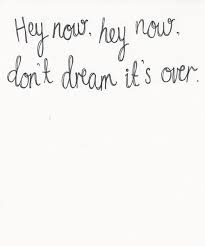 Hey now, hey now,
don't dream it's over.